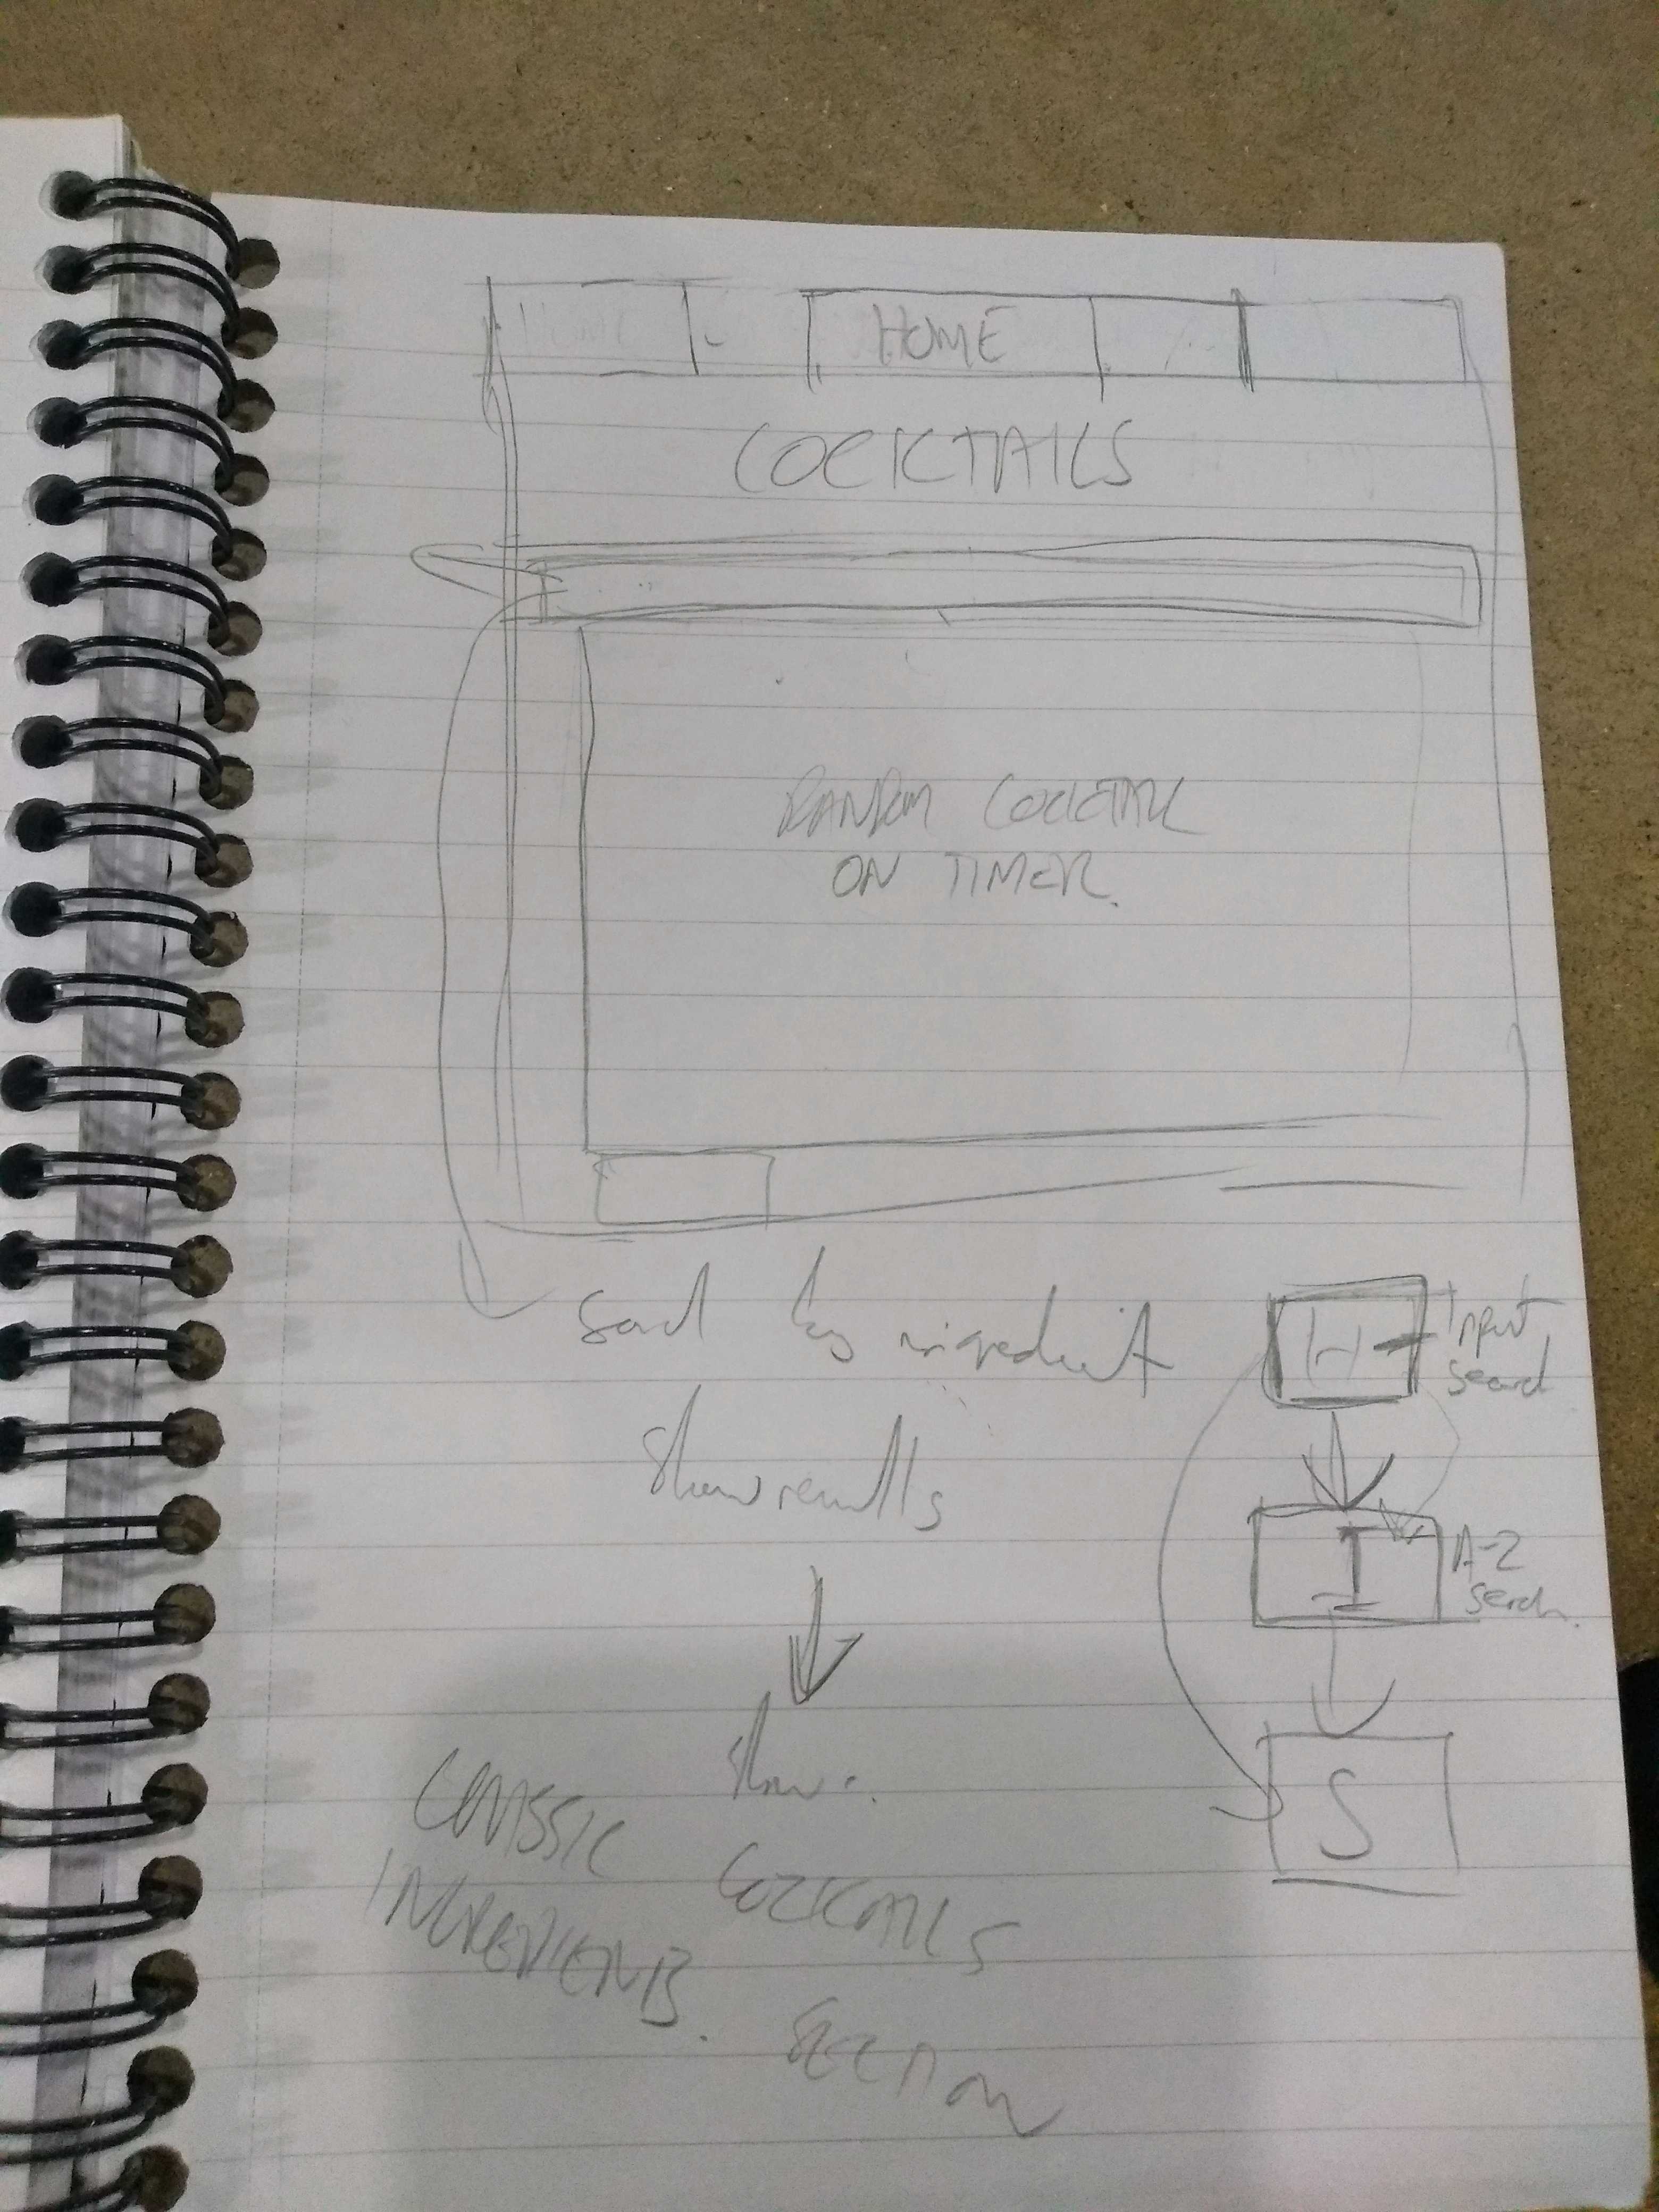 HOME
COCKTAILS
RANDOM COCKTAIL
ON TIMER.
Search by ingredient
Show results
Show.
CLASSIC COCKTAILS
INGREDIENTS. SECTION
H Input
Search
I A-Z
Serch.
S